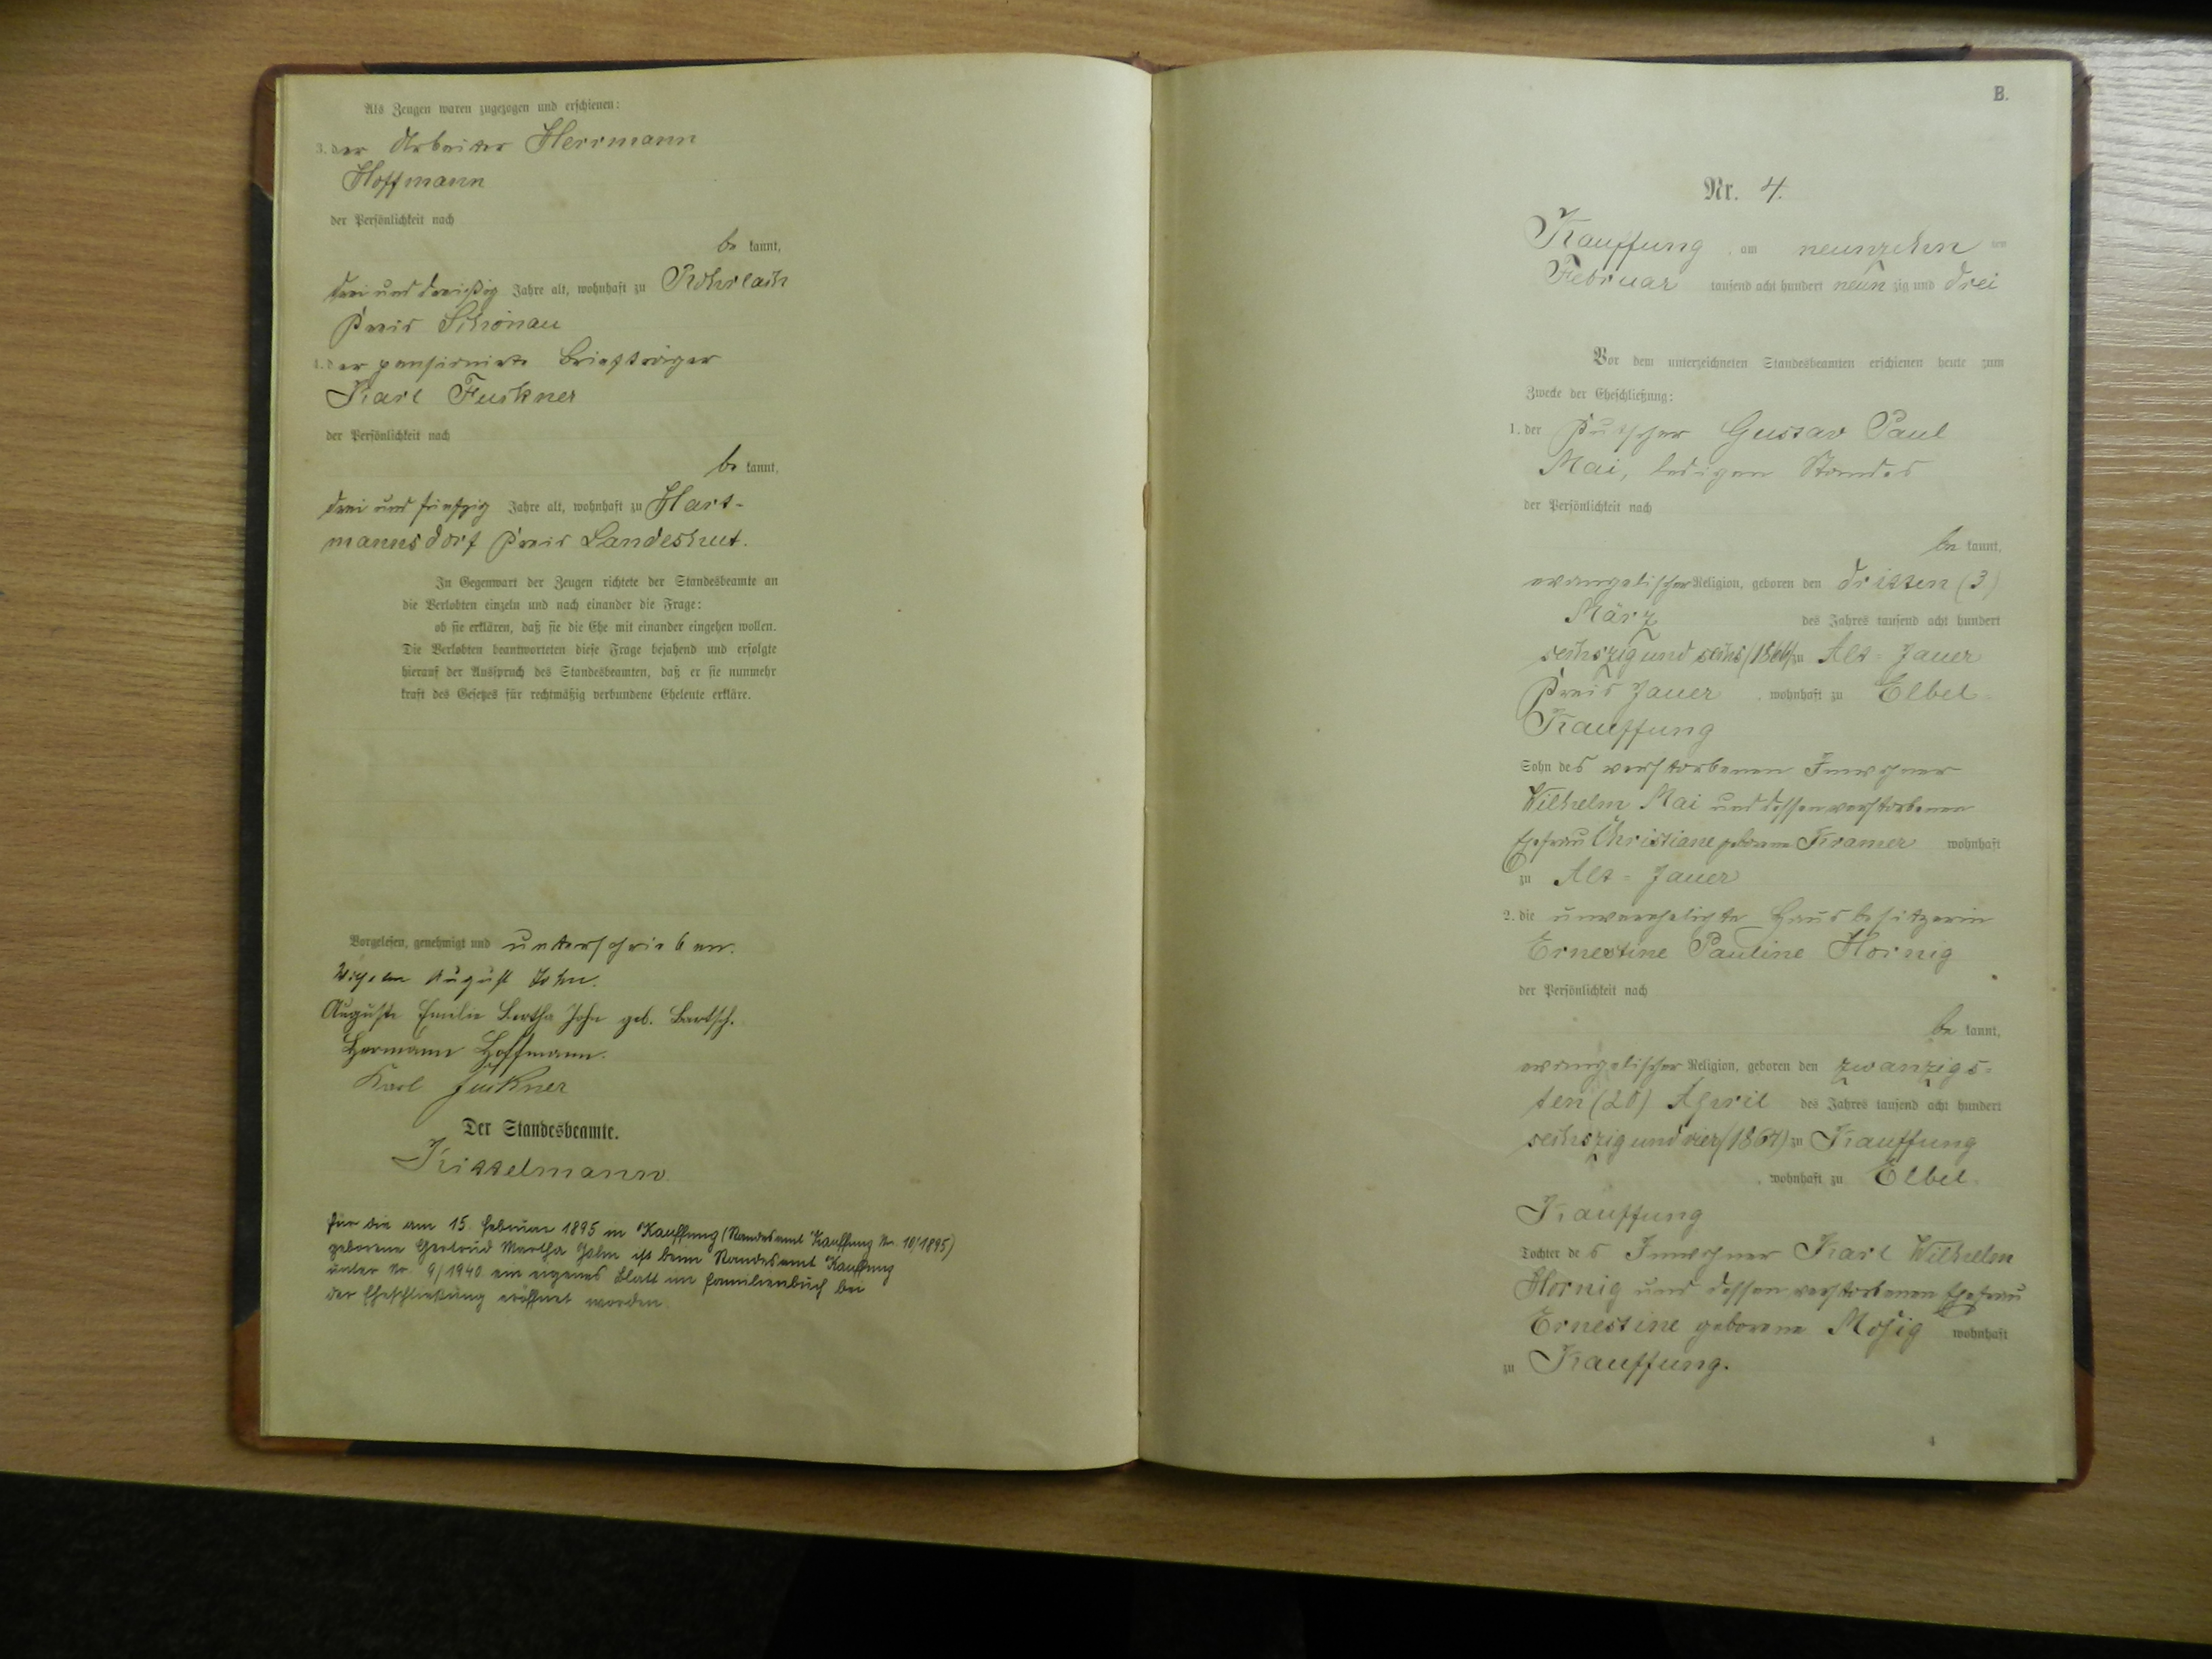 Als Zeugen waren zugezogen und erschienen:
3. der Arbeiter Herrmann
Hoffmann
der Persönlichkeit nach
be kannt,
drei und dreißig Jahre alt, wohnhaft zu Röhrlach
Kreis Schönau
4. der pensionirte Briefträger
Karl Fuckner
der Persönlichkeit nach
be kannt,
drei und fünfzig Jahre alt, wohnhaft zu Hart-
mannsdorf Kreis Landeshut.
In Gegenwart der Zeugen richtete der Standesbeamte an
die Verlobten einzeln und nach einander die Frage:
ob sie erklären, daß sie die Ehe mit einander eingehen wollen.
Die Verlobten beantworteten diese Frage bejahend und erfolgte
hierauf der Ausspruch des Standesbeamten, daß er sie nunmehr
kraft des Gesetzes für rechtmäßig verbundene Eheleute erkläre.
Vorgelesen, genehmigt und unterschrieben.
August John.
Auguste Emilie Bertha John geb. Bartsch.
Hermann Hoffmann.
Karl Fuckner
Der Standesbeamte.
Kittelmann
Für die am 15. Februar 1895 in Kauffung (Standesamt Kauffung Nr. 10/1895)
geborene Gertrud Martha John ist beim Standesamt Kauffung
unter Nr. 9/1940 ein eigenes Blatt im Familienbuch bei
der Eheschließung eröffnet worden.
B.
Nr. 4.
Kauffung, am neunzehn ten
Februar tausend acht hundert neun zig und drei
Vor dem unterzeichneten Standesbeamten erschienen heute zum
Zwecke der Eheschließung:
1. der Kutscher Gustav Paul
Mai, ledigen Standes
der Persönlichkeit nach
be kannt,
evangelischer Religion, geboren den dritten (3)
März des Jahres tausend acht hundert
sechszig und sechs (1866) zu Alt=Jauer
Kreis Jauer, wohnhaft zu Elbel-
Kauffung
Sohn des verstorbenen Inwohner
Wilhelm Mai und dessen verstorbenen
Ehefrau Christiane geborene Kramer wohnhaft
zu Alt=Jauer
2. die unverehelichte Hausbesitzerin
Ernestine Pauline Hornig
der Persönlichkeit nach
be kannt,
evangelischer Religion, geboren den zwanzigs-
ten (20) April des Jahres tausend acht hundert
sechszig und vier (1864) zu Kauffung
, wohnhaft zu Elbel-
Kauffung
Tochter des Inwohner Karl Wilhelm
Hornig und dessen verstorbenen Ehefrau
Ernestine geborene Mosig wohnhaft
zu Kauffung.
4